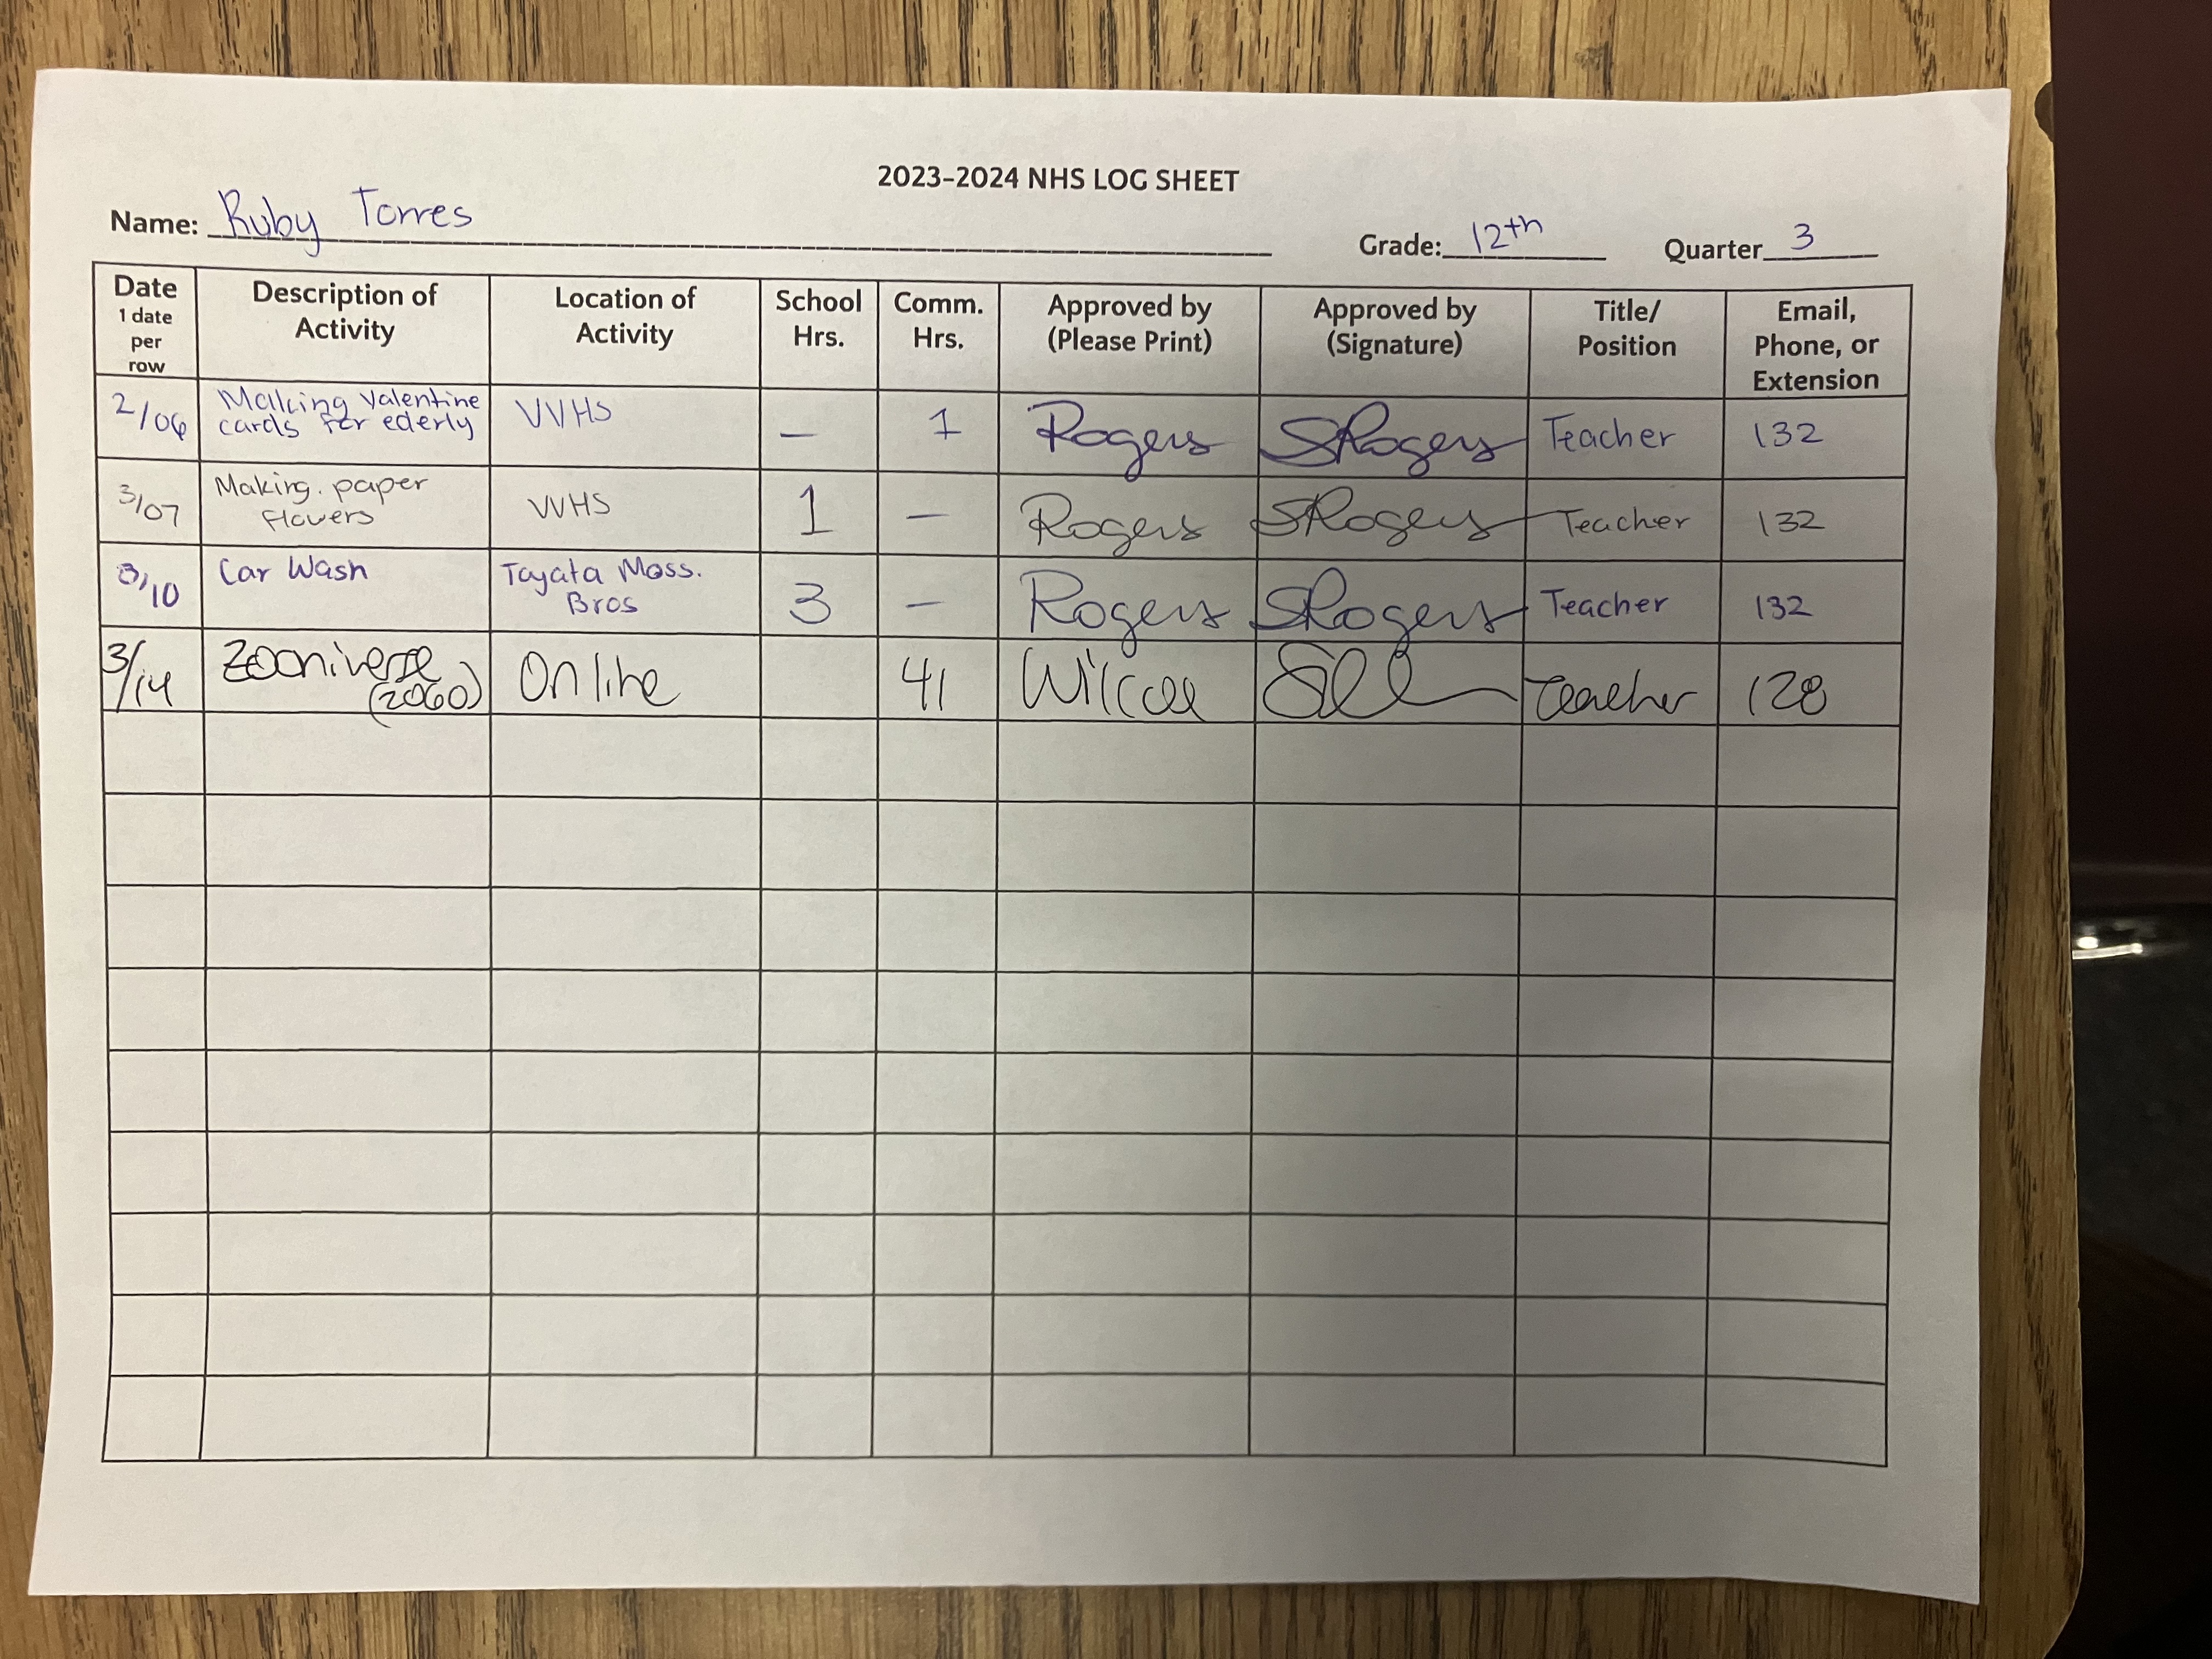 2023-2024 NHS LOG SHEET
Name: Ruby Torres Grade: 12th Quarter 3
Date 1 date per row | Description of Activity | Location of Activity | School Hrs. | Comm. Hrs. | Approved by (Please Print) | Approved by (Signature) | Title/ Position | Email, Phone, or Extension
2/06 | Making valentine cards for ederly | VVHS | — | 1 | Rogers | SRogers | Teacher | 132
3/07 | Making paper flowers | VVHS | 1 | — | Rogers | SRogers | Teacher | 132
3/10 | Car Wash | Toyata Moss. Bros | 3 | — | Rogers | SRogers | Teacher | 132
3/14 | Zooniverse (2060) | Online | | 41 | | | Teacher | 128